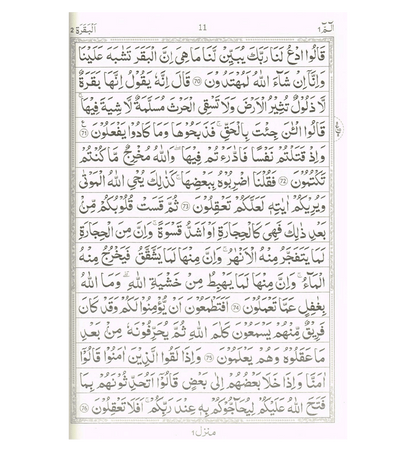 الٓمّٓ ١ 11 اَلْبَقَرَة ٢
قَالُوا ادْعُ لَنَا رَبَّكَ يُبَيِّنْ لَّنَا مَا هِيَ اِنَّ الْبَقَرَ تَشٰبَهَ عَلَيْنَا
وَاِنَّاۤ اِنْ شَآءَ اللّٰهُ لَمُهْتَدُوْنَ ﴿70﴾ قَالَ اِنَّهٗ يَقُوْلُ اِنَّهَا بَقَرَةٌ
لَّا ذَلُوْلٌ تُثِيْرُ الْاَرْضَ وَلَا تَسْقِي الْحَرْثَ مُسَلَّمَةٌ لَّا شِيَةَ فِيْهَا
قَالُوا الْـٰٔنَ جِئْتَ بِالْحَقِّ فَذَبَحُوْهَا وَمَا كَادُوْا يَفْعَلُوْنَ ﴿71﴾
وَاِذْ قَتَلْتُمْ نَفْسًا فَادّٰرَءْتُمْ فِيْهَا وَاللّٰهُ مُخْرِجٌ مَّا كُنْتُمْ
تَكْتُمُوْنَ ﴿72﴾ فَقُلْنَا اضْرِبُوْهُ بِبَعْضِهَا كَذٰلِكَ يُحْيِ اللّٰهُ الْمَوْتٰى
وَيُرِيْكُمْ اٰيٰتِهٖ لَعَلَّكُمْ تَعْقِلُوْنَ ﴿73﴾ ثُمَّ قَسَتْ قُلُوْبُكُمْ مِّنْ
بَعْدِ ذٰلِكَ فَهِيَ كَالْحِجَارَةِ اَوْ اَشَدُّ قَسْوَةً وَاِنَّ مِنَ الْحِجَارَةِ
لَمَا يَتَفَجَّرُ مِنْهُ الْاَنْهٰرُ وَاِنَّ مِنْهَا لَمَا يَشَّقَّقُ فَيَخْرُجُ مِنْهُ
الْمَآءُ وَاِنَّ مِنْهَا لَمَا يَهْبِطُ مِنْ خَشْيَةِ اللّٰهِ وَمَا اللّٰهُ
بِغَافِلٍ عَمَّا تَعْمَلُوْنَ ﴿74﴾ اَفَتَطْمَعُوْنَ اَنْ يُّؤْمِنُوْا لَكُمْ وَقَدْ كَانَ
فَرِيْقٌ مِّنْهُمْ يَسْمَعُوْنَ كَلٰمَ اللّٰهِ ثُمَّ يُحَرِّفُوْنَهٗ مِنْۢ بَعْدِ
مَا عَقَلُوْهُ وَهُمْ يَعْلَمُوْنَ ﴿75﴾ وَاِذَا لَقُوا الَّذِيْنَ اٰمَنُوْا قَالُوْۤا
اٰمَنَّا وَاِذَا خَلَا بَعْضُهُمْ اِلٰى بَعْضٍ قَالُوْۤا اَتُحَدِّثُوْنَهُمْ بِمَا
فَتَحَ اللّٰهُ عَلَيْكُمْ لِيُحَآجُّوْكُمْ بِهٖ عِنْدَ رَبِّكُمْ اَفَلَا تَعْقِلُوْنَ ﴿76﴾
منزل ١